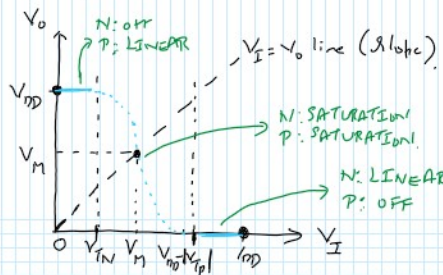 V₀
N: OFF
P: LINEAR
V_I = V₀ line (slope).
V_DD
N: SATURATION
P: SATURATION
V_M
N: LINEAR
P: OFF
0
V_TN
V_M
V_DD-|V_Tp|
V_DD
V_I